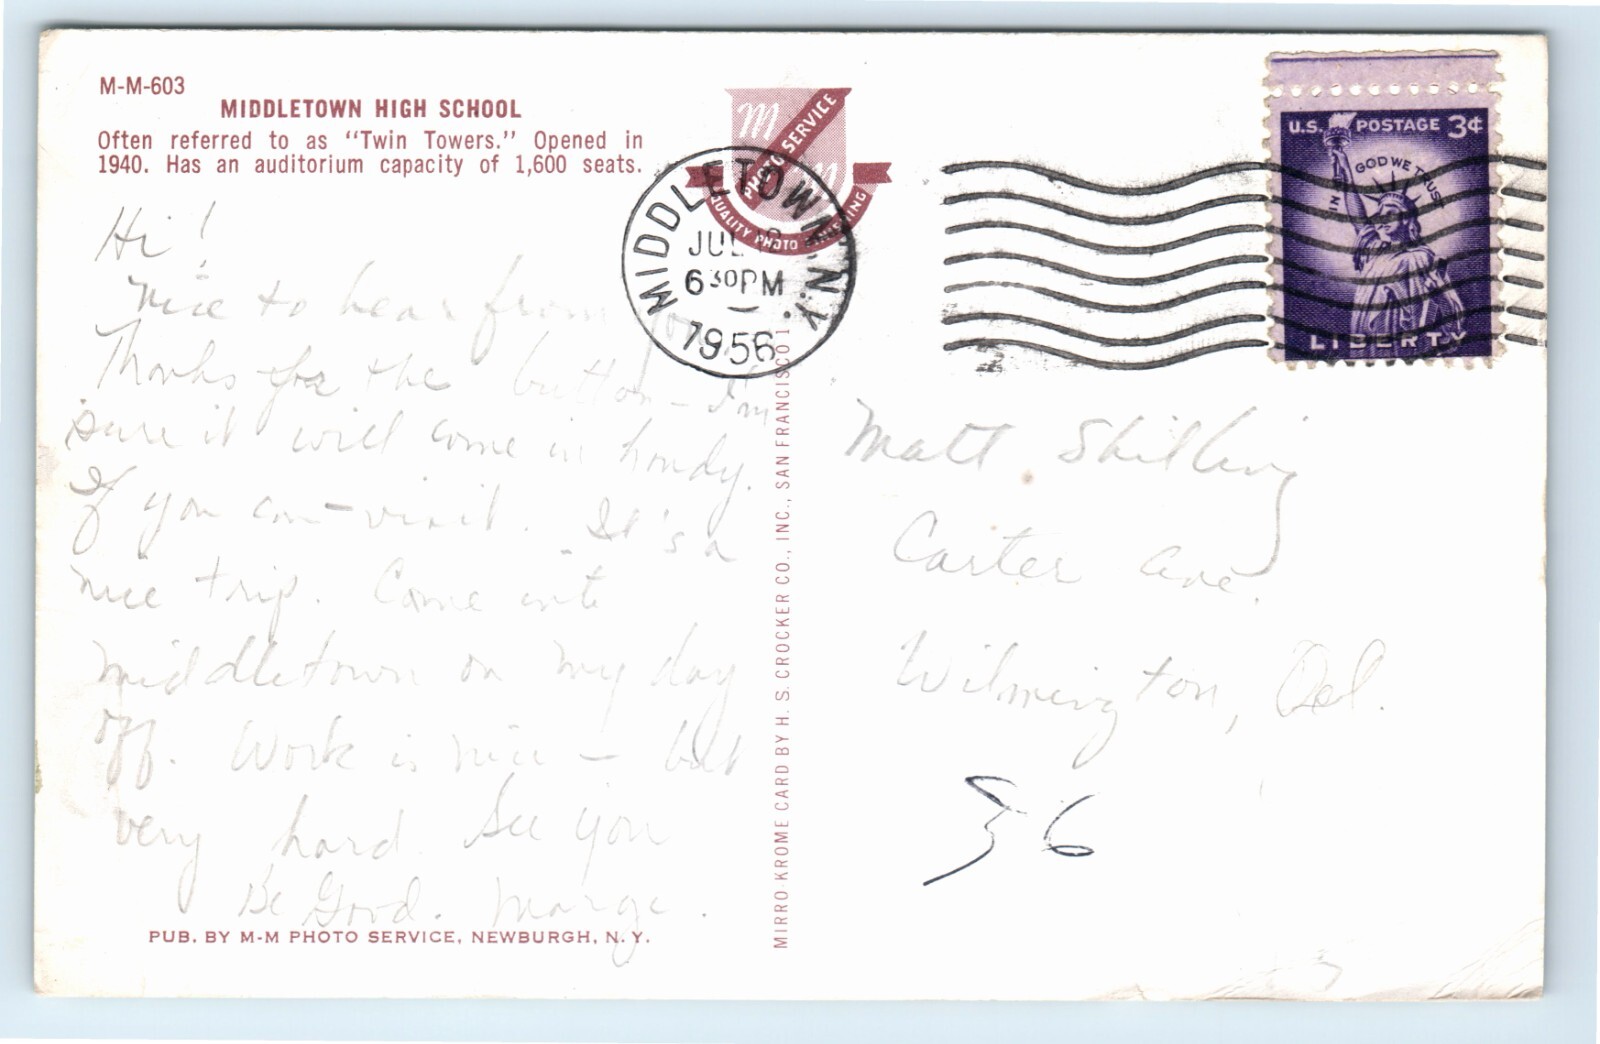 M-M-603
MIDDLETOWN HIGH SCHOOL
Often referred to as "Twin Towers." Opened in
1940. Has an auditorium capacity of 1,600 seats.
Hi!
Nice to hear from you.
Thanks for the button – I'm
sure it will come in handy.
If you can – visit. It's a
nice trip. Come into
Middletown on my day
off. Work is nice – but
very hard. See you
Be Good. Marge.
PUB. BY M-M PHOTO SERVICE, NEWBURGH, N. Y.
m PHOTO SERVICE m
QUALITY PHOTO
MIDDLETOWN, N.Y.
JUL
6 30 PM
1956
MIRRO-KROME CARD BY H. S. CROCKER CO., INC., SAN FRANCISCO 1
U.S. POSTAGE 3¢
IN GOD WE TRUST
LIBERTY
Matt Shilling
Carter Ave.
Wilmington, Del.
56